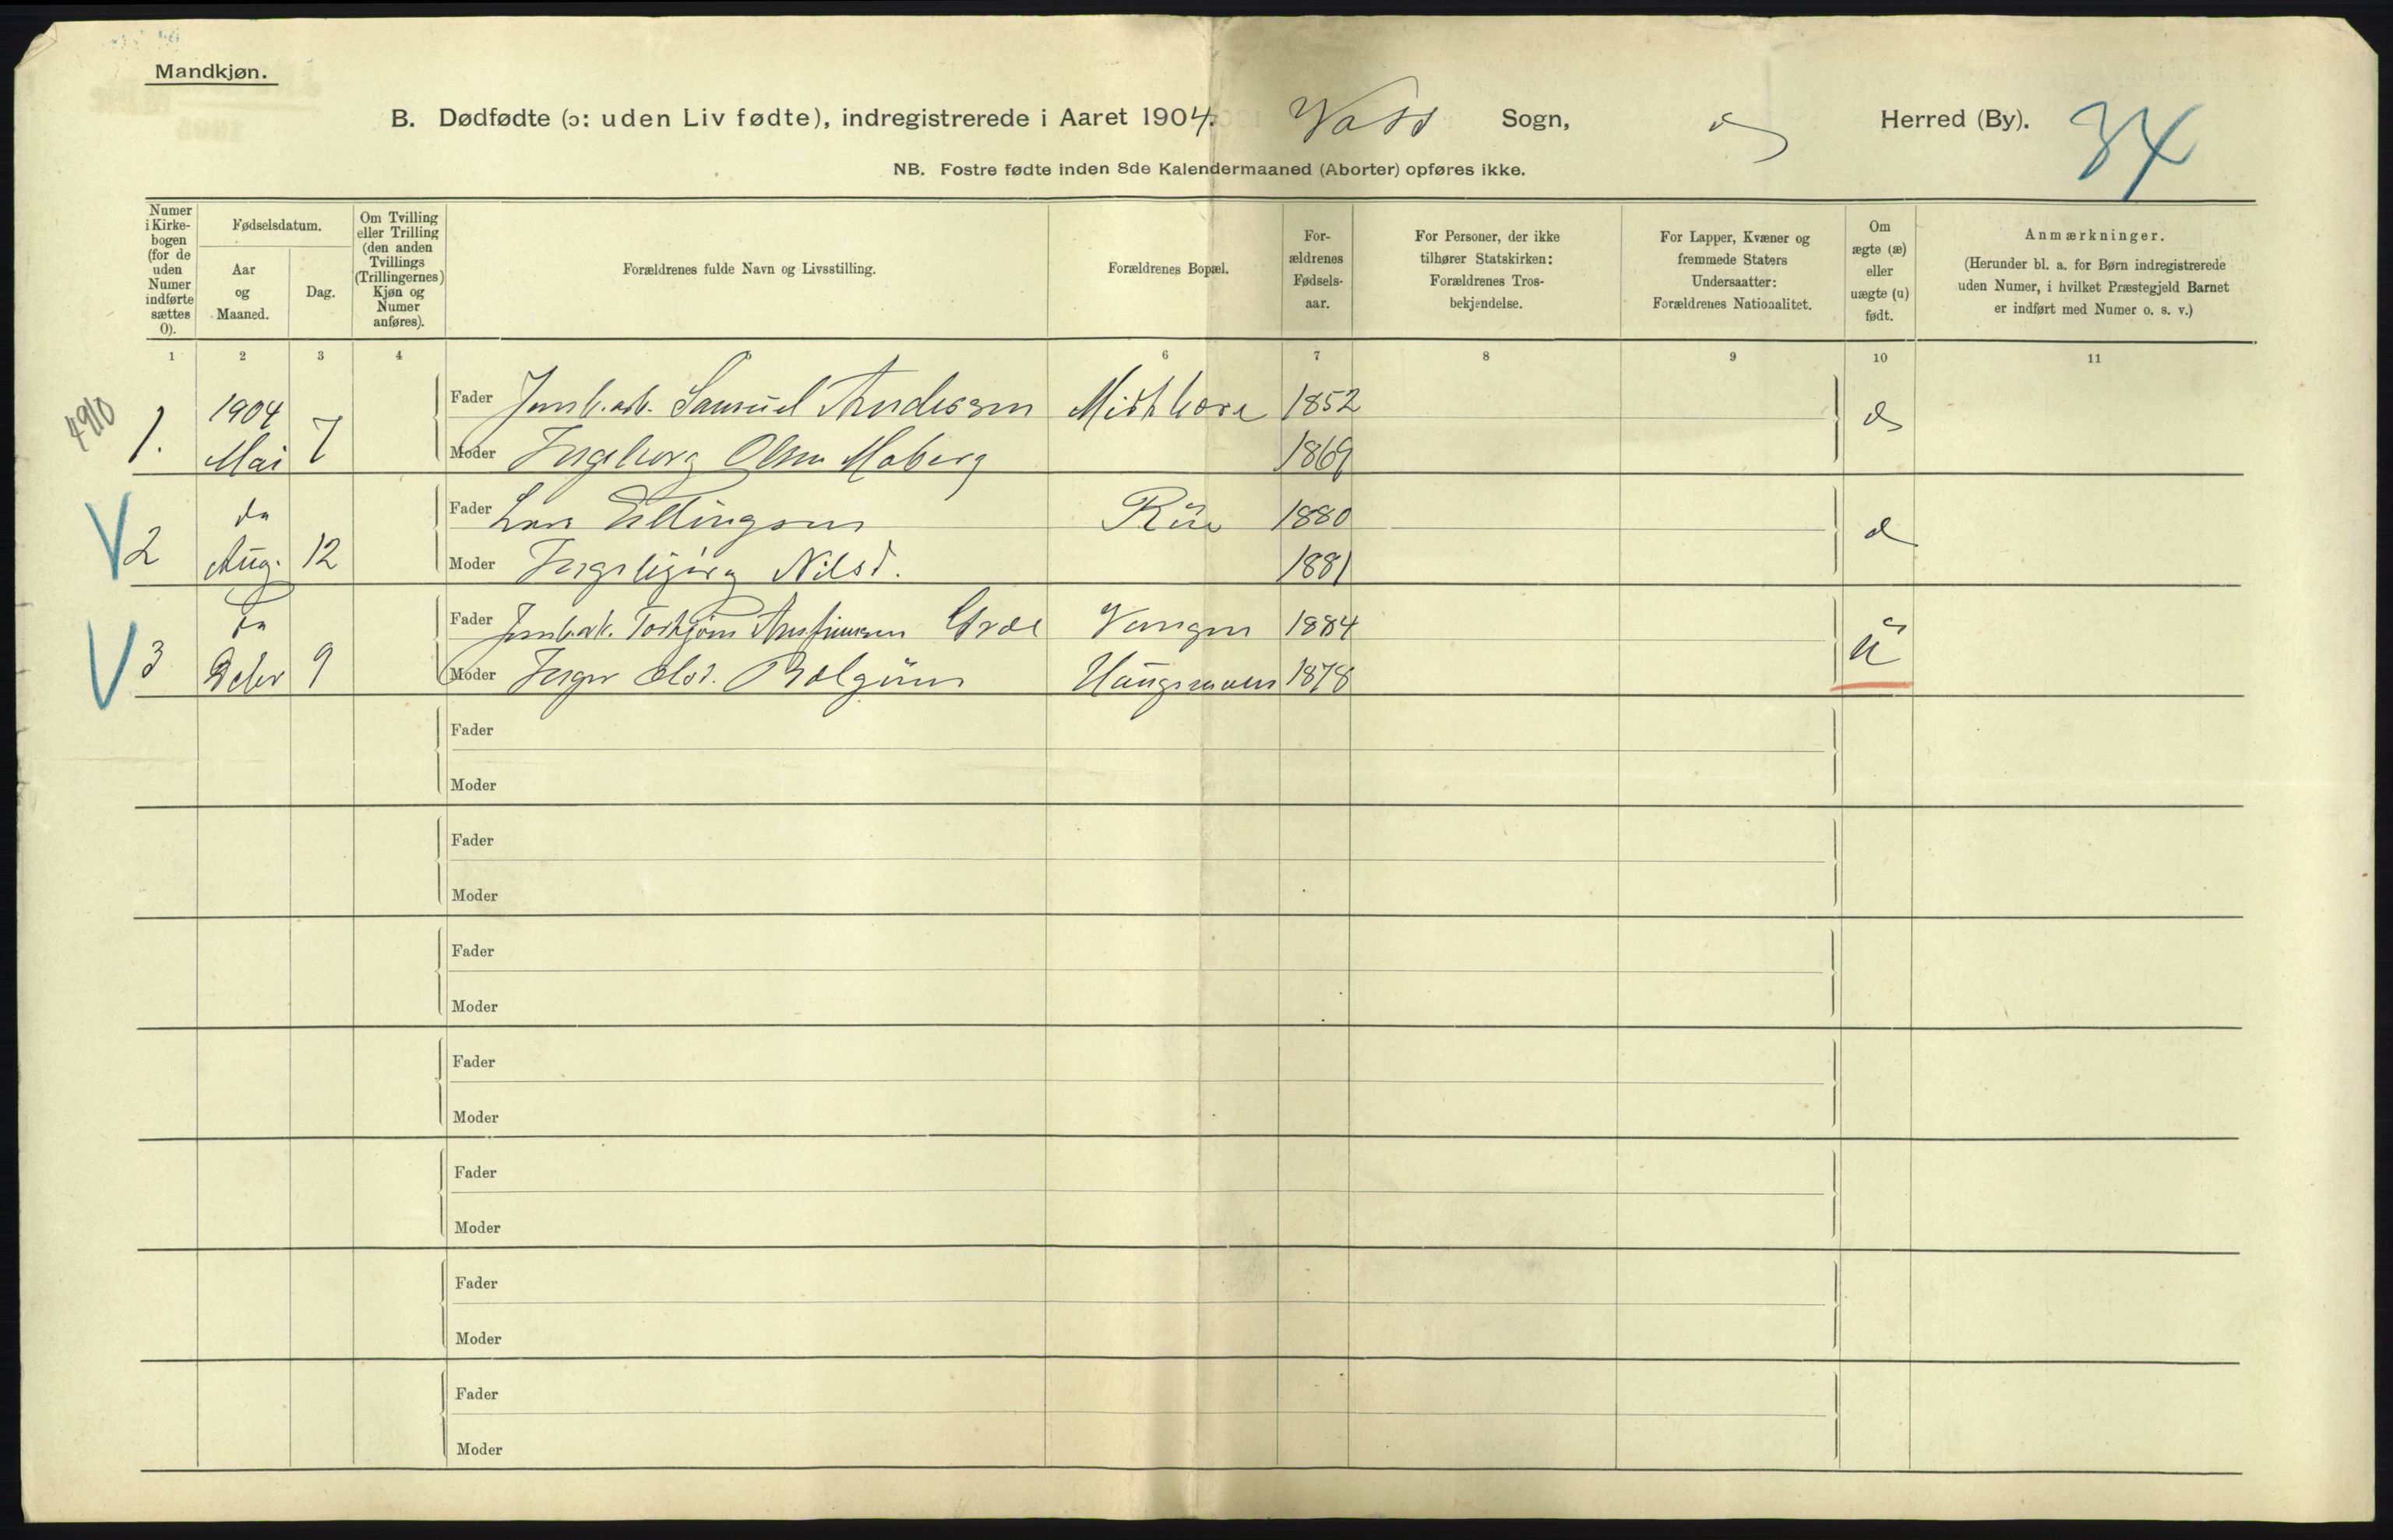 Mandkjøn.
B. Dødfødte (ɔ: uden Liv fødte), indregistrerede i Aaret 1904. Voss Sogn, Herred (By). 34
NB. Fostre fødte inden 8de Kalendermaaned (Aborter) opføres ikke.
Numer i Kirke-bogen (for de uden Numer indførte sættes 0).
Fødselsdatum.
Aar og Maaned.
Dag.
Om Tvilling eller Trilling (den anden Tvillings (Trillingernes) Kjøn og Numer anføres).
Forældrenes fulde Navn og Livsstilling.
Forældrenes Bopæl.
For-ældrenes Fødsels-aar.
For Personer, der ikke tilhører Statskirken: Forældrenes Tros-bekjendelse.
For Lapper, Kvæner og fremmede Staters Undersaatter: Forældrenes Nationalitet.
Om ægte (æ) eller uægte (u) født.
Anmærkninger.
(Herunder bl. a. for Børn indregistrerede uden Numer, i hvilket Præstegjeld Barnet er indført med Numer o. s. v.)
1 2 3 4 6 7 8 9 10 11
1. 1904 Mai 7 Fader Jernb.arb. Samuel Anderssen 1852 æ
Moder Ingeborg Olsen Moberg 1869
V 2 do Aug. 12 Fader Lars Ellingsen 1880 æ
Moder Ingebjørg Nilsd. 1881
V 3 do Debr 9 Fader Jernb.arb. Torbjørn Arnfinnsen Vangen 1884 u
Moder Inger Olsd. 1878
Fader
Moder
Fader
Moder
Fader
Moder
Fader
Moder
Fader
Moder
Fader
Moder
Fader
Moder